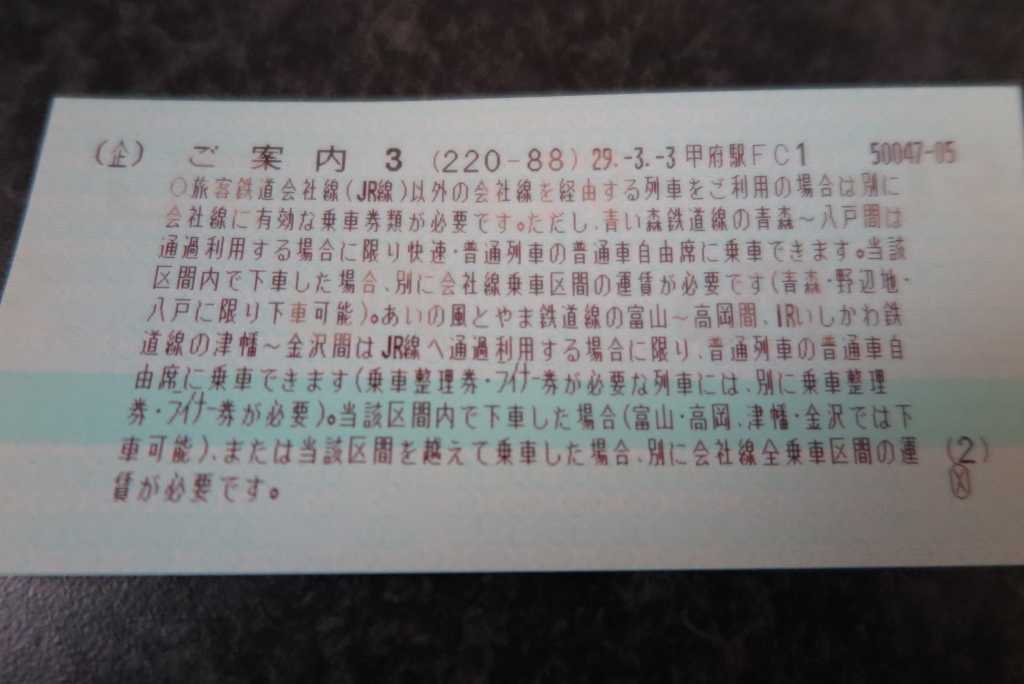 (企) ご案内 3 (220-88) 29.-3.-3 甲府駅FC1 50047-05
○旅客鉄道会社線(JR線)以外の会社線を経由する列車をご利用の場合は別に
会社線に有効な乗車券類が必要です。ただし、青い森鉄道線の青森～八戸間は
通過利用する場合に限り快速・普通列車の普通車自由席に乗車できます。当該
区間内で下車した場合、別に会社線乗車区間の運賃が必要です(青森・野辺地・
八戸に限り下車可能)。あいの風とやま鉄道線の富山～高岡間、IRいしかわ鉄
道線の津幡～金沢間はJR線へ通過利用する場合に限り、普通列車の普通車自
由席に乗車できます(乗車整理券・ライナー券が必要な列車には、別に乗車整理
券・ライナー券が必要)。当該区間内で下車した場合(富山・高岡、津幡・金沢では下
車可能)、または当該区間を越えて乗車した場合、別に会社線全乗車区間の運 (2)
賃が必要です。